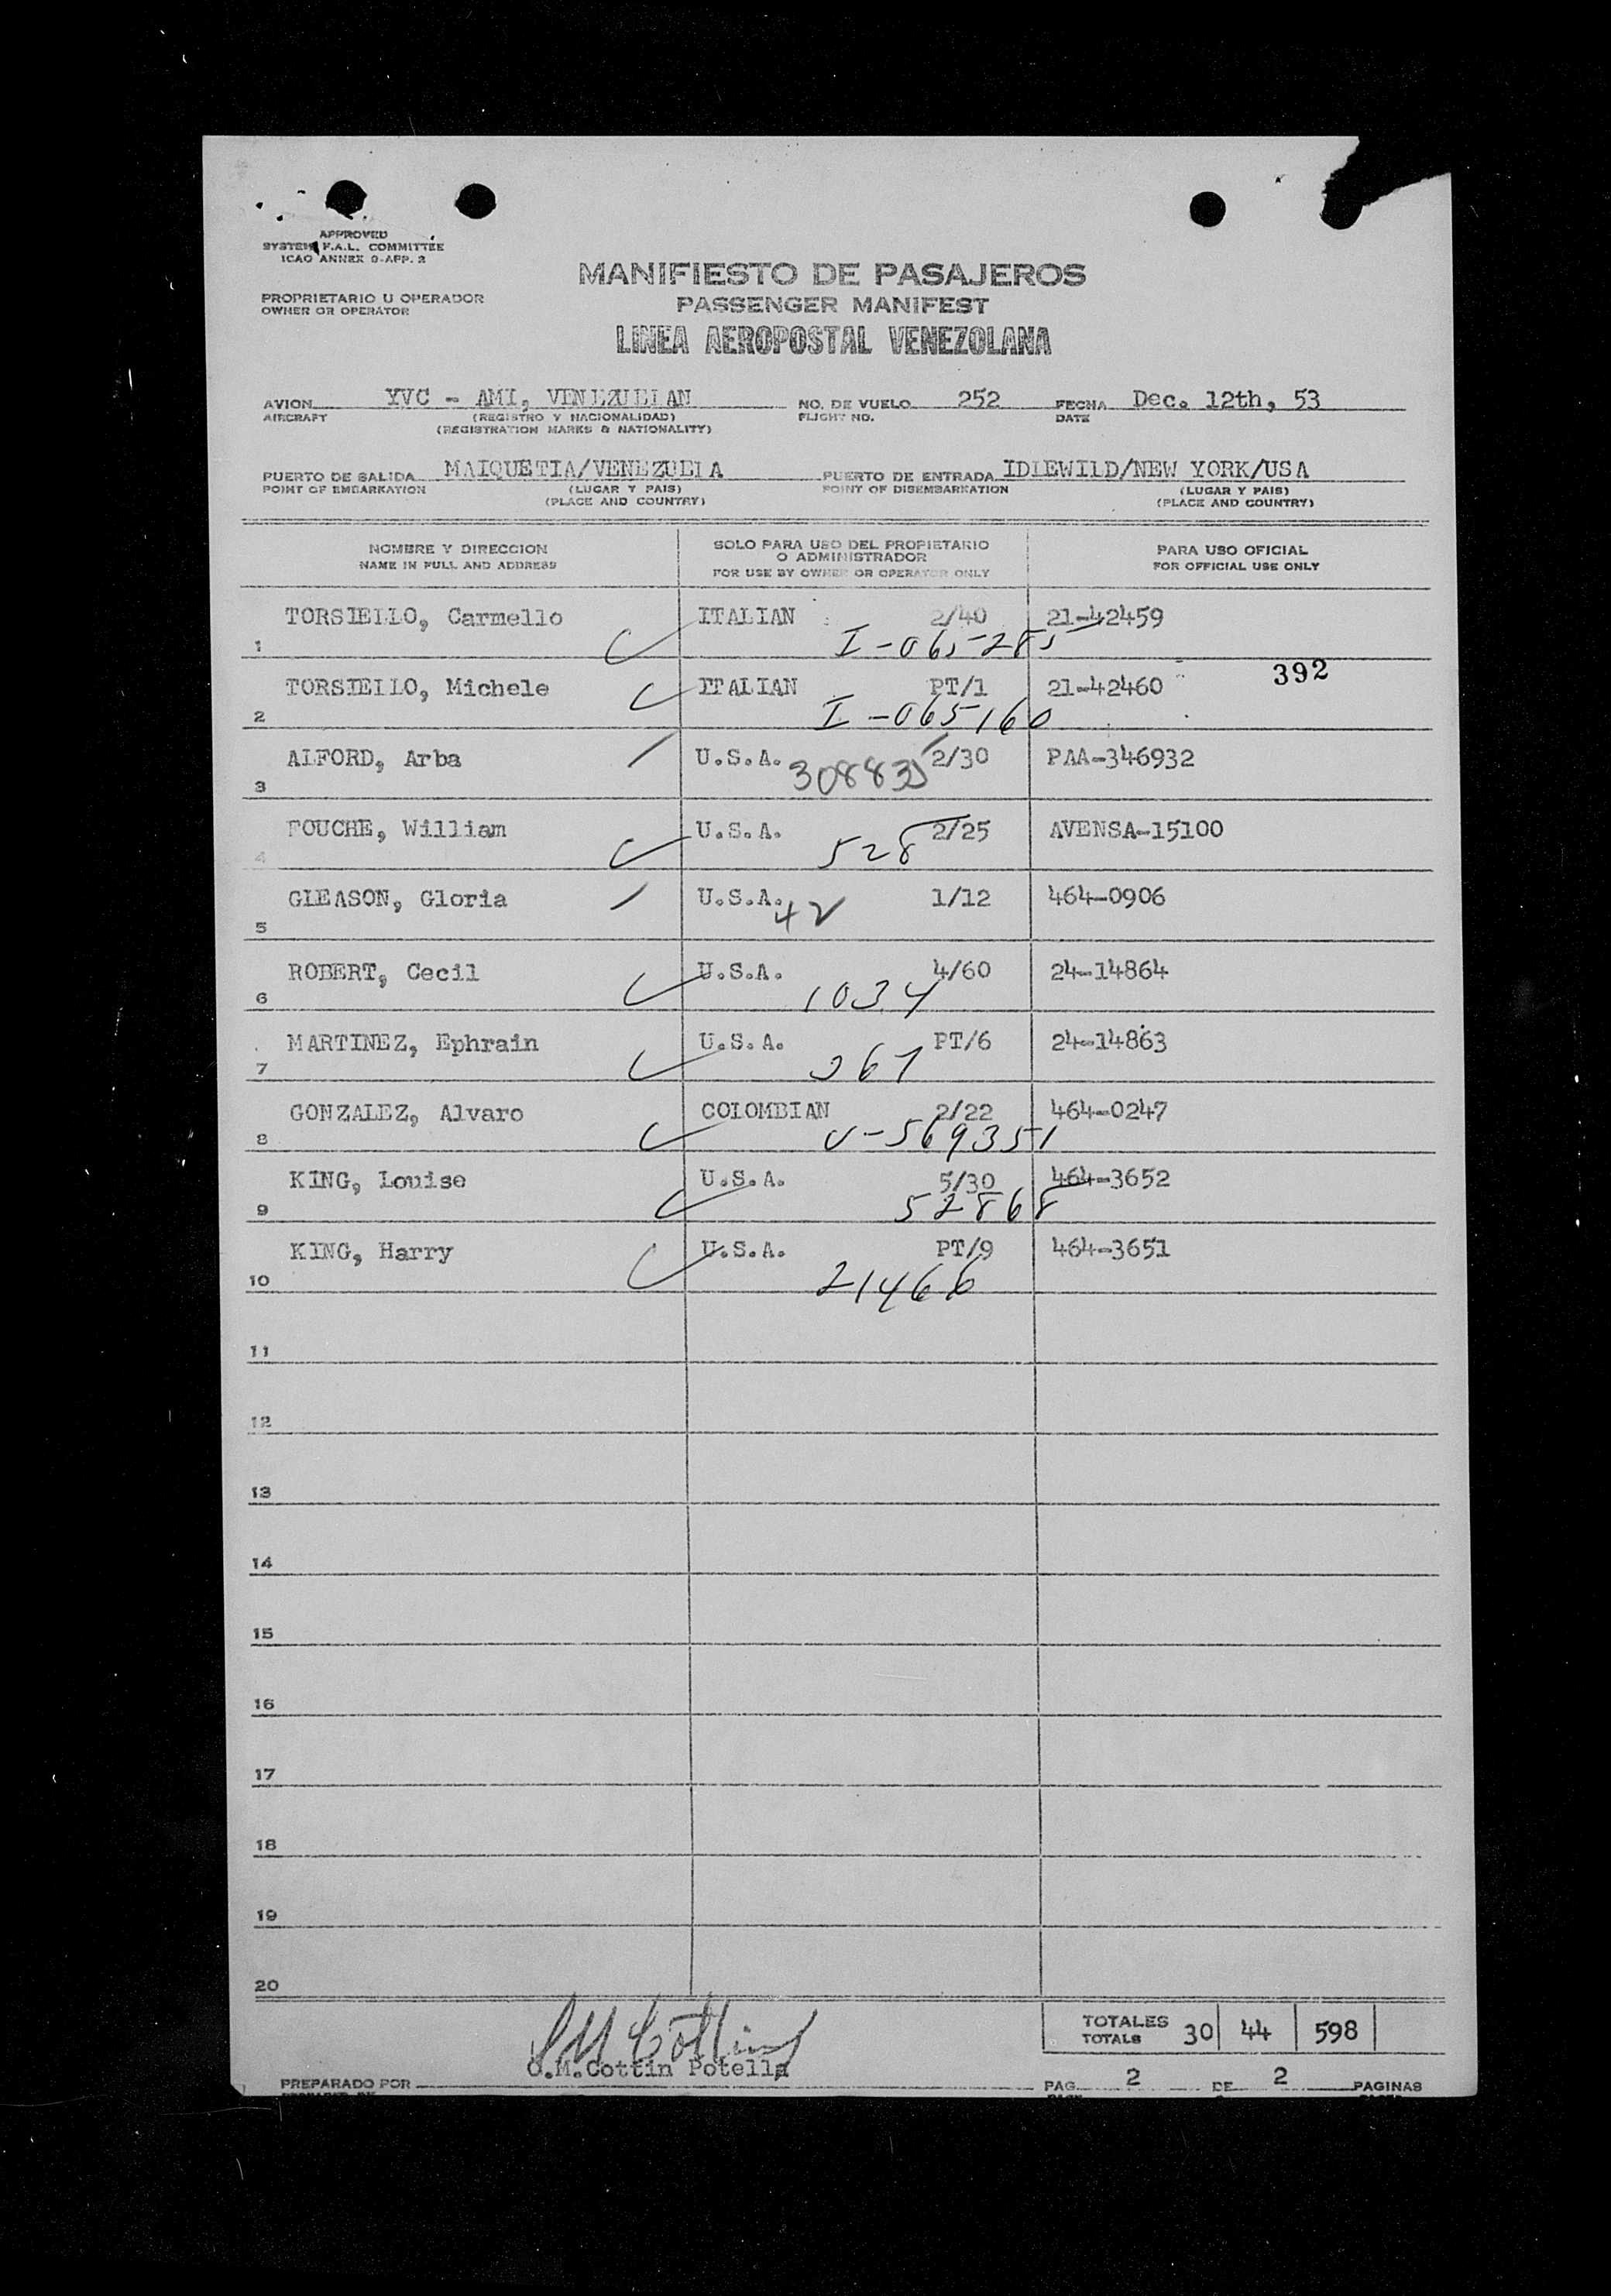 APPROVED
SYSTEM F.A.L. COMMITTEE
ICAO ANNEX 9-APP. 2
MANIFIESTO DE PASAJEROS
PROPRIETARIO U OPERADOR
OWNER OR OPERATOR
PASSENGER MANIFEST
LINEA AEROPOSTAL VENEZOLANA
AVION YVC - AMI, VENEZUELAN NO. DE VUELO 252 FECHA Dec. 12th, 53
AIRCRAFT (REGISTRO Y NACIONALIDAD) FLIGHT NO. DATE
(REGISTRATION MARKS & NATIONALITY)
PUERTO DE SALIDA MAIQUETIA/VENEZUELA PUERTO DE ENTRADA IDLEWILD/NEW YORK/USA
POINT OF EMBARKATION (LUGAR Y PAIS) POINT OF DISEMBARKATION (LUGAR Y PAIS)
(PLACE AND COUNTRY) (PLACE AND COUNTRY)
NOMBRE Y DIRECCION
NAME IN FULL AND ADDRESS
SOLO PARA USO DEL PROPIETARIO
O ADMINISTRADOR
FOR USE BY OWNER OR OPERATOR ONLY
PARA USO OFICIAL
FOR OFFICIAL USE ONLY
TORSIELLO, Carmello ITALIAN 2/40 21-42459
1 I-065285
392
TORSIELLO, Michele ITALIAN PT/1 21-42460
2 I-065160
ALFORD, Arba U.S.A. 2/30 PAA-346932
3 308835
FOUCHE, William U.S.A. 2/25 AVENSA-15100
4 528
GLEASON, Gloria U.S.A. 1/12 464-0906
5 42
ROBERT, Cecil U.S.A. 4/60 24-14864
6 1034
MARTINEZ, Ephrain U.S.A. PT/6 24-14863
7 367
GONZALEZ, Alvaro COLOMBIAN 2/22 464-0247
8 V-569351
KING, Louise U.S.A. 5/30 464-3652
9 52868
KING, Harry U.S.A. PT/9 464-3651
10 21466
11
12
13
14
15
16
17
18
19
20
TOTALES
TOTALS 30 44 598
O.M.Cottin Potella
PREPARADO POR PAG. 2 DE 2 PAGINAS